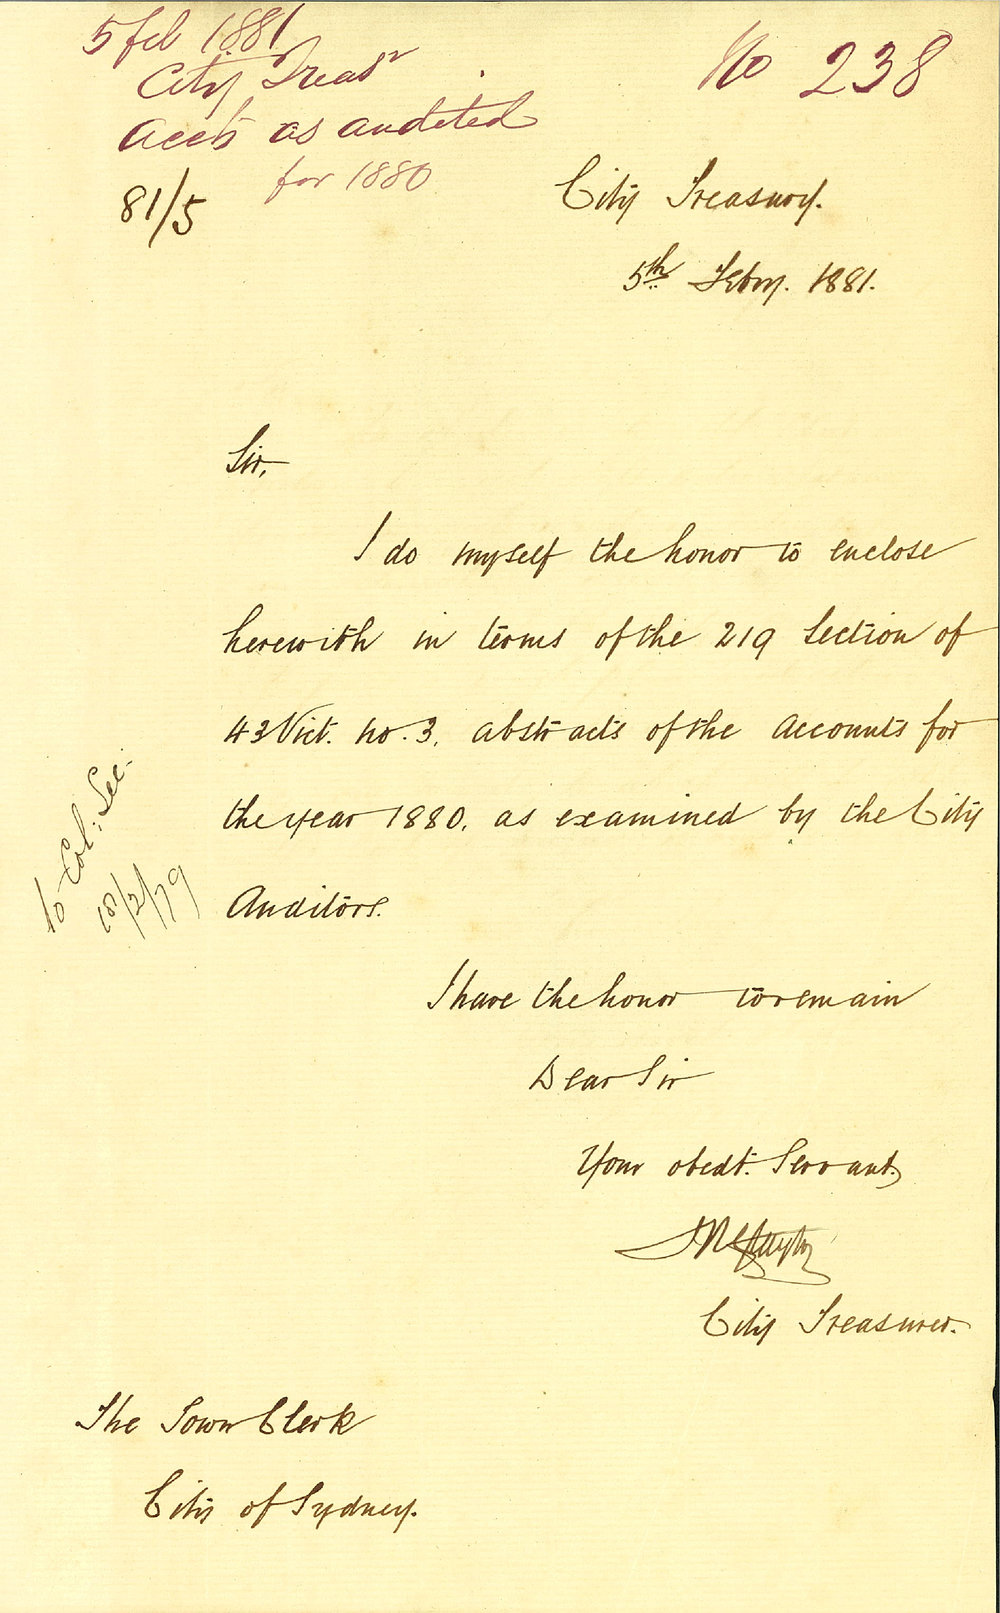 5 feb 1881
City Treasr
Accts as audited
for 1880
81/5
No 238
City Treasury.
5th Febry. 1881.
Sir,
I do myself the honor to enclose
herewith in terms of the 219 Section of
43 Vict. no. 3. abstracts of the Accounts for
the year 1880. as examined by the City
Auditors.
to Col: Sec.
18/2/79
I have the honor to remain
Dear Sir
Your obedt. Servant.
City Treasurer.
The Town Clerk
City of Sydney.